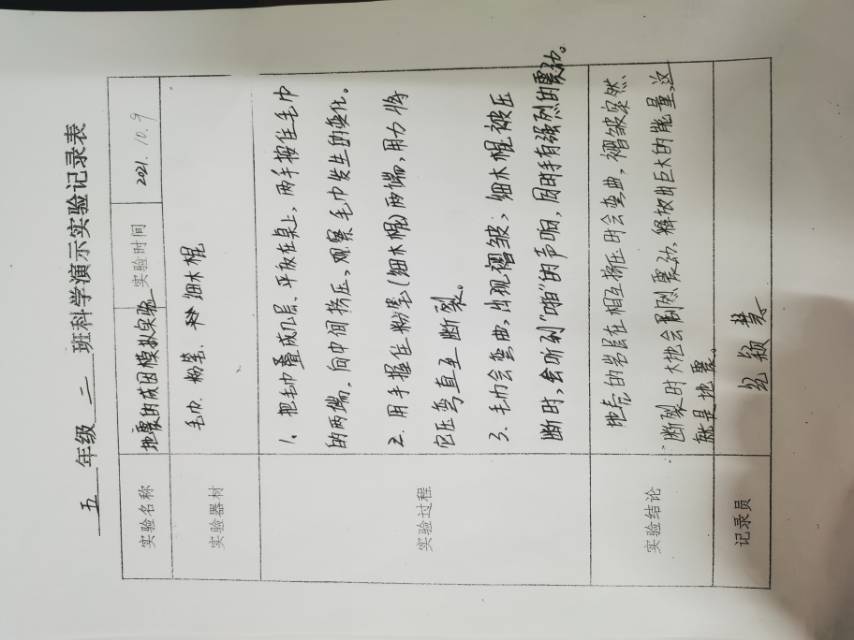 五 年级 二 班科学演示实验记录表
实验名称 地震的成因模拟实验 实验时间 2021.10.9
实验器材 毛巾、粉笔、细木棍
实验过程
1、把毛巾叠成几层、平放在桌上,两手按住毛巾
的两端,向中间挤压,观察毛巾发生的变化。
2、用手握住粉笔(细木棍)两端,用力将
它压弯直至断裂。
3、毛巾会弯曲,出现褶皱;细木棍被压
断时,会听到“啪”的声响,同时手有强烈的震动。
实验结论
地壳的岩层在相互挤压时会弯曲,褶皱突然
断裂时大地会剧烈震动,释放出巨大的能量,这
就是地震。
记录员 颖慧